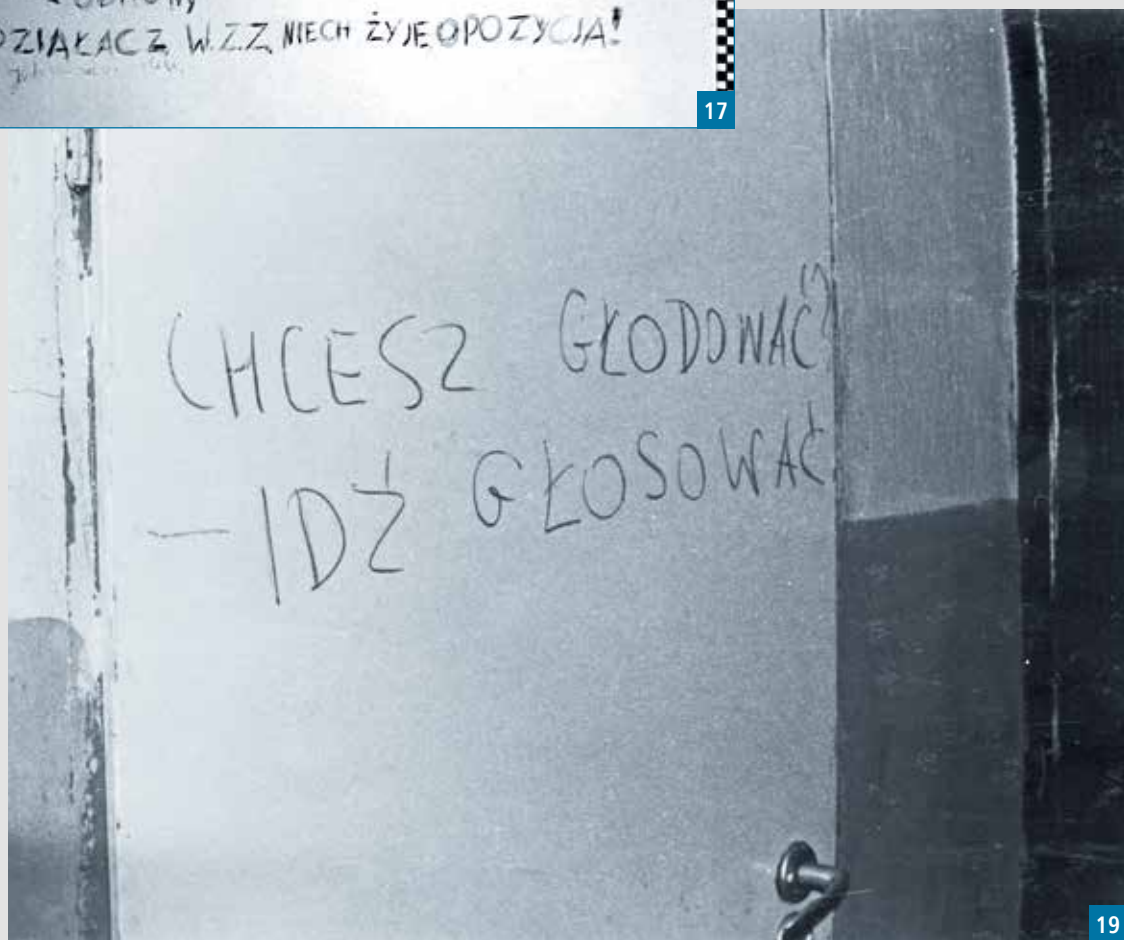 DZIAŁACZ W.Z.Z. NIECH ŻYJE OPOZYCJA!
17
CHCESZ GŁODOWAĆ?
— IDŹ GŁOSOWAĆ
19